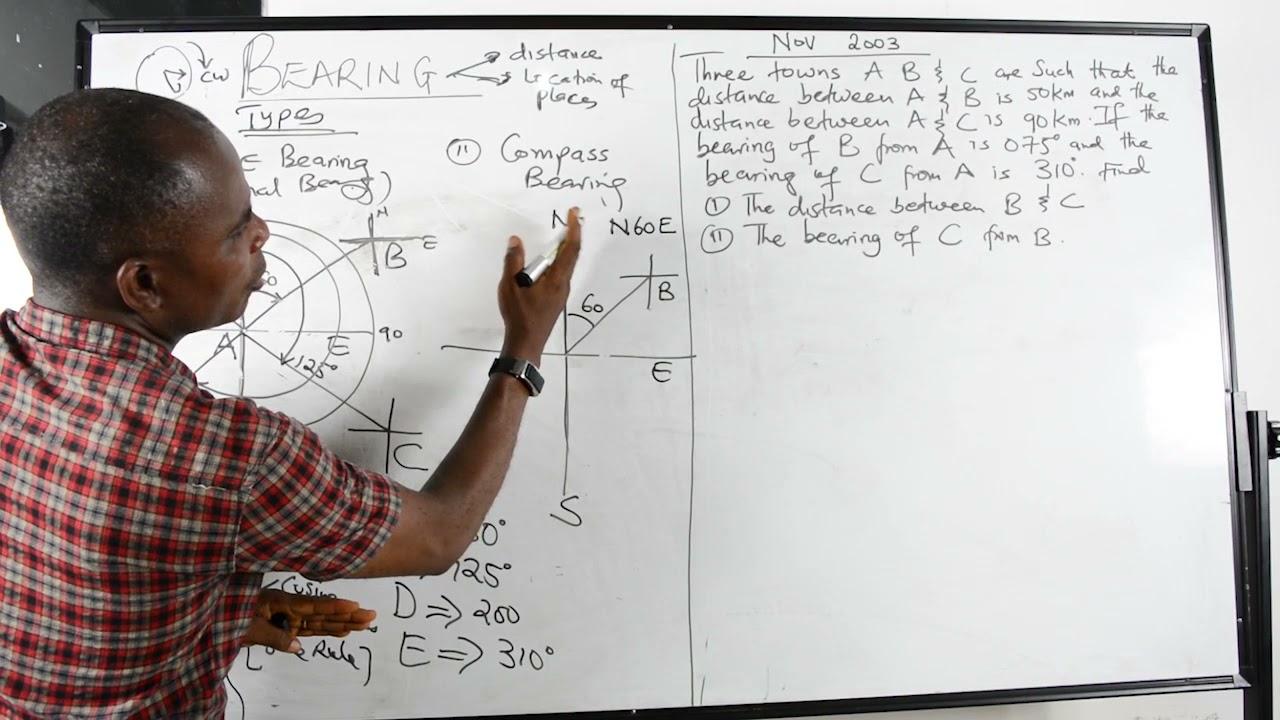 CW
BEARING
distance
location of
places
Types
E Bearing
Bearing)
N
B E
A
E
90
125°
C
125°
D => 200
E => 310°
Rule]
(II) Compass
Bearing
N
N60E
60
B
E
S
Nov 2003
Three towns A B & C are such that the
distance between A & B is 50km and the
distance between A & C is 90km. If the
bearing of B from A is 075° and the
bearing of C from A is 310°. Find
(I) The distance between B & C
(II) The bearing of C from B.